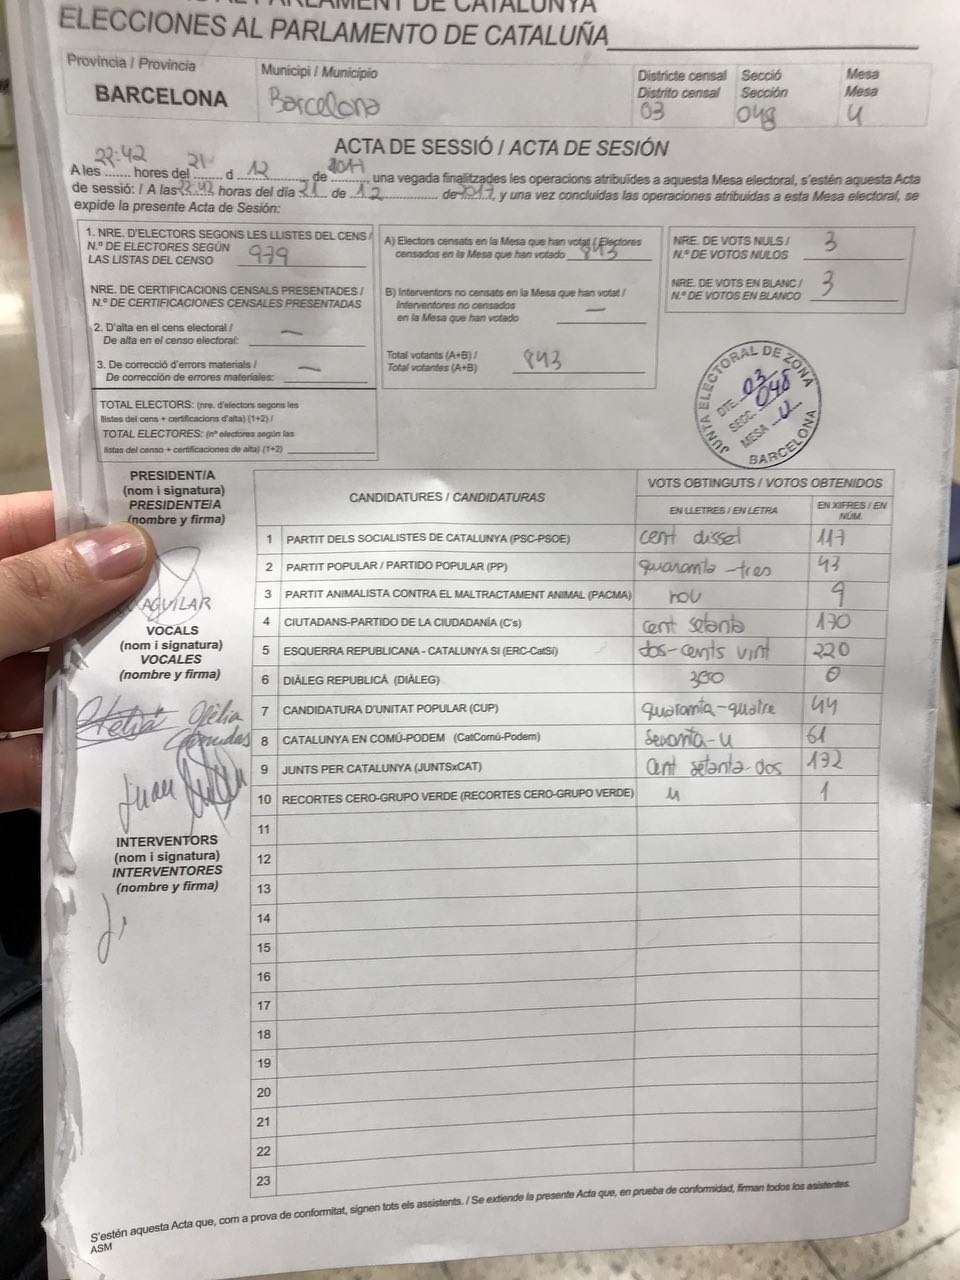 PARLAMENT DE CATALUNYA
ELECCIONES AL PARLAMENTO DE CATALUÑA
Província / Provincia
BARCELONA
Municipi / Municipio
Barcelona
Districte censal
Distrito censal
03
Secció
Sección
048
Mesa
Mesa
U
ACTA DE SESSIÓ / ACTA DE SESIÓN
A les 22:42 hores del 21 d 12 de 2017, una vegada finalitzades les operacions atribuïdes a aquesta Mesa electoral, s'estén aquesta Acta
de sessió: / A las 22:42 horas del día 21 de 12 de 2017, y una vez concluidas las operaciones atribuidas a esta Mesa electoral, se
expide la presente Acta de Sesión:
1. NRE. D'ELECTORS SEGONS LES LLISTES DEL CENS /
N.º DE ELECTORES SEGÚN
LAS LISTAS DEL CENSO 979
NRE. DE CERTIFICACIONS CENSALS PRESENTADES /
N.º DE CERTIFICACIONES CENSALES PRESENTADAS
2. D'alta en el cens electoral /
De alta en el censo electoral: —
3. De correcció d'errors materials /
De corrección de errores materiales: —
TOTAL ELECTORS: (nre. d'electors segons les
llistes del cens + certificacions d'alta) (1+2) /
TOTAL ELECTORES: (nº electores según las
listas del censo + certificaciones de alta) (1+2)
A) Electors censats en la Mesa que han votat / Electores
censados en la Mesa que han votado 843
B) Interventors no censats en la Mesa que han votat /
Interventores no censados
en la Mesa que han votado —
Total votants (A+B) /
Total votantes (A+B) 843
NRE. DE VOTS NULS /
N.º DE VOTOS NULOS 3
NRE. DE VOTS EN BLANC /
N.º DE VOTOS EN BLANCO 3
JUNTA ELECTORAL DE ZONA
DTE. 03
SECC. 048
MESA U
BARCELONA
PRESIDENT/A
(nom i signatura)
PRESIDENTE/A
(nombre y firma)
AGUILAR
VOCALS
(nom i signatura)
VOCALES
(nombre y firma)
Ofèlia
Juan
INTERVENTORS
(nom i signatura)
INTERVENTORES
(nombre y firma)
CANDIDATURES / CANDIDATURAS
VOTS OBTINGUTS / VOTOS OBTENIDOS
EN LLETRES / EN LETRA
EN XIFRES / EN
NÚM.
1 PARTIT DELS SOCIALISTES DE CATALUNYA (PSC-PSOE) cent disset 117
2 PARTIT POPULAR / PARTIDO POPULAR (PP) quaranta-tres 43
3 PARTIT ANIMALISTA CONTRA EL MALTRACTAMENT ANIMAL (PACMA) nou 9
4 CIUTADANS-PARTIDO DE LA CIUDADANÍA (C's) cent setanta 170
5 ESQUERRA REPUBLICANA - CATALUNYA SI (ERC-CatSí) dos-cents vint 220
6 DIÀLEG REPUBLICÀ (DIÀLEG) zero 0
7 CANDIDATURA D'UNITAT POPULAR (CUP) quaranta-quatre 44
8 CATALUNYA EN COMÚ-PODEM (CatComú-Podem) seixanta-u 61
9 JUNTS PER CATALUNYA (JUNTSxCAT) cent setanta-dos 172
10 RECORTES CERO-GRUPO VERDE (RECORTES CERO-GRUPO VERDE) u 1
11
12
13
14
15
16
17
18
19
20
21
22
23
S'estén aquesta Acta que, com a prova de conformitat, signen tots els assistents. / Se extiende la presente Acta que, en prueba de conformidad, firman todos los asistentes.
ASM